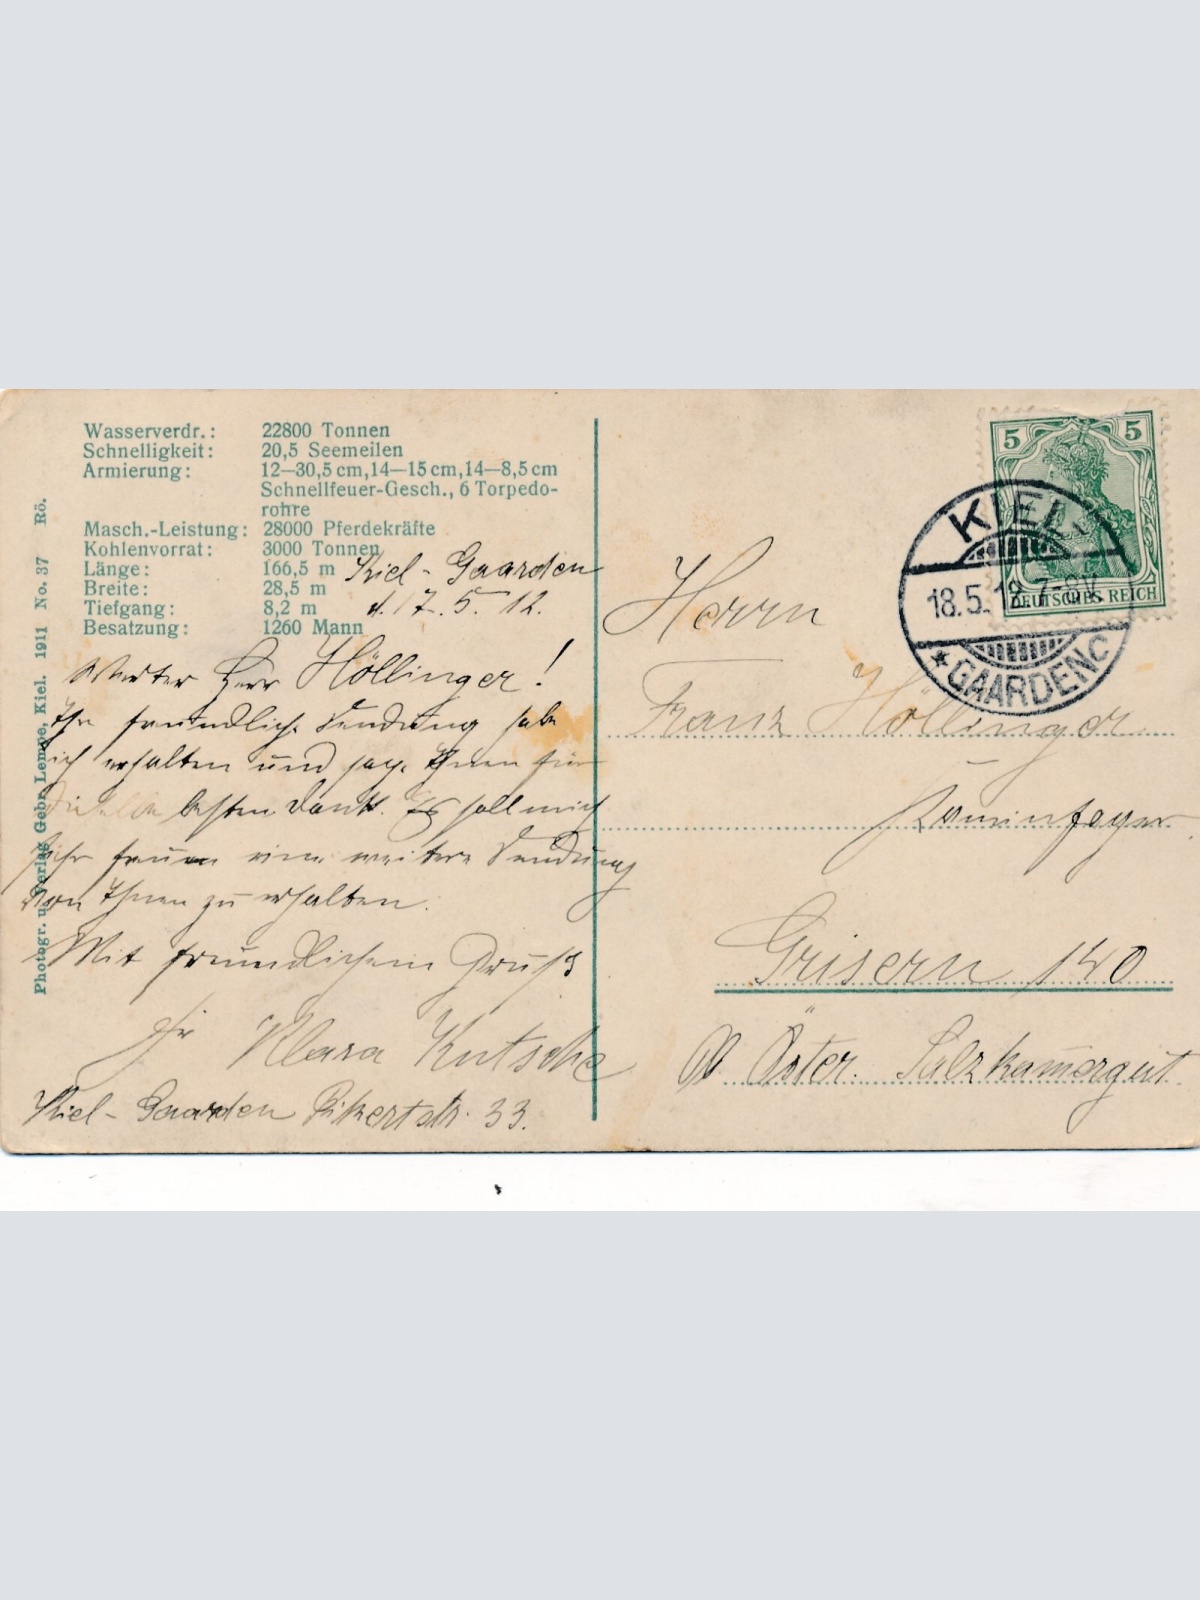 Wasserverdr.: 22800 Tonnen
Schnelligkeit: 20,5 Seemeilen
Armierung: 12—30,5 cm, 14—15 cm, 14—8,5 cm
Schnellfeuer-Gesch., 6 Torpedo-
rohre
Masch.-Leistung: 28000 Pferdekräfte
Kohlenvorrat: 3000 Tonnen
Länge: 166,5 m
Breite: 28,5 m
Tiefgang: 8,2 m
Besatzung: 1260 Mann
Kiel - Gaarden
d. 17. 5. 12.
Werter Herr Höllinger!
Ihre freundliche Sendung habe
ich erhalten und sage Ihnen für
dieselbe besten Dank. Es soll mich
sehr freuen eine weitere Sendung
von Ihnen zu erhalten.
Mit freundlichem Gruß
Ihr Klara Kutsche
Kiel - Gaarden Pikertstr. 33.
Photogr. u. Verlag Gebr. Lempe, Kiel. 1911 No. 37 Rö.
5 5
DEUTSCHES REICH
KIEL-
18.5.12 7-8V.
* GAARDEN C
Herrn
Franz Höllinger
Kaminfeger
Goisern 140
Ob Öster. Salzkammergut